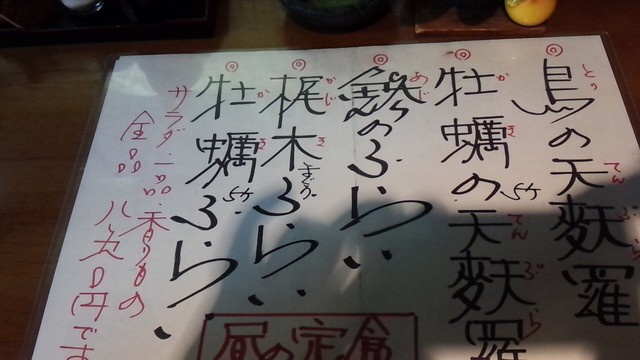 ◎鳥の天麩羅
とり てん ぷ ら
◎牡蠣の天麩羅
か き 5ケ てん ぷ ら
◎鯵のふらい
あじ
◎梶木まぐろふらい
かじ き
◎牡蠣ふらい
か き 5ケ
サラダ一品・香りもの
全品八九〇円です
昼の定食